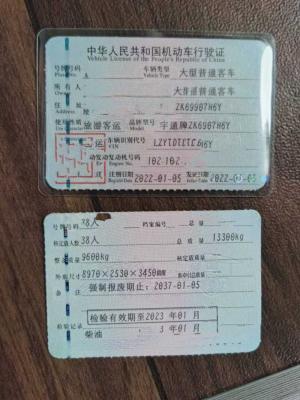 中华人民共和国机动车行驶证
Vehicle License of the People's Republic of China
号牌号码 车辆类型 大型普通客车
Plate No. A Vehicle Type
所有人 大型普通客车
Owner
住址 ZK6907H6Y
Address
使用性质 旅游客运 品牌型号 宇通牌ZK6907H6Y
Use Character Model
车辆识别代号
VIN
发动机号码 102 102
Engine No.
注册日期 2022-01-05 发证日期 2022-01-05
Register Date Issue Date
号牌号码 38人 档案编号 总质量
核定载人数 38人 总质量 13300kg
整备质量 9600kg
外廓尺寸 8970×2530×3450
备注 强制报废期止:2037-01-05
检验有效期至2023年01月
检验记录 3年01月
柴油